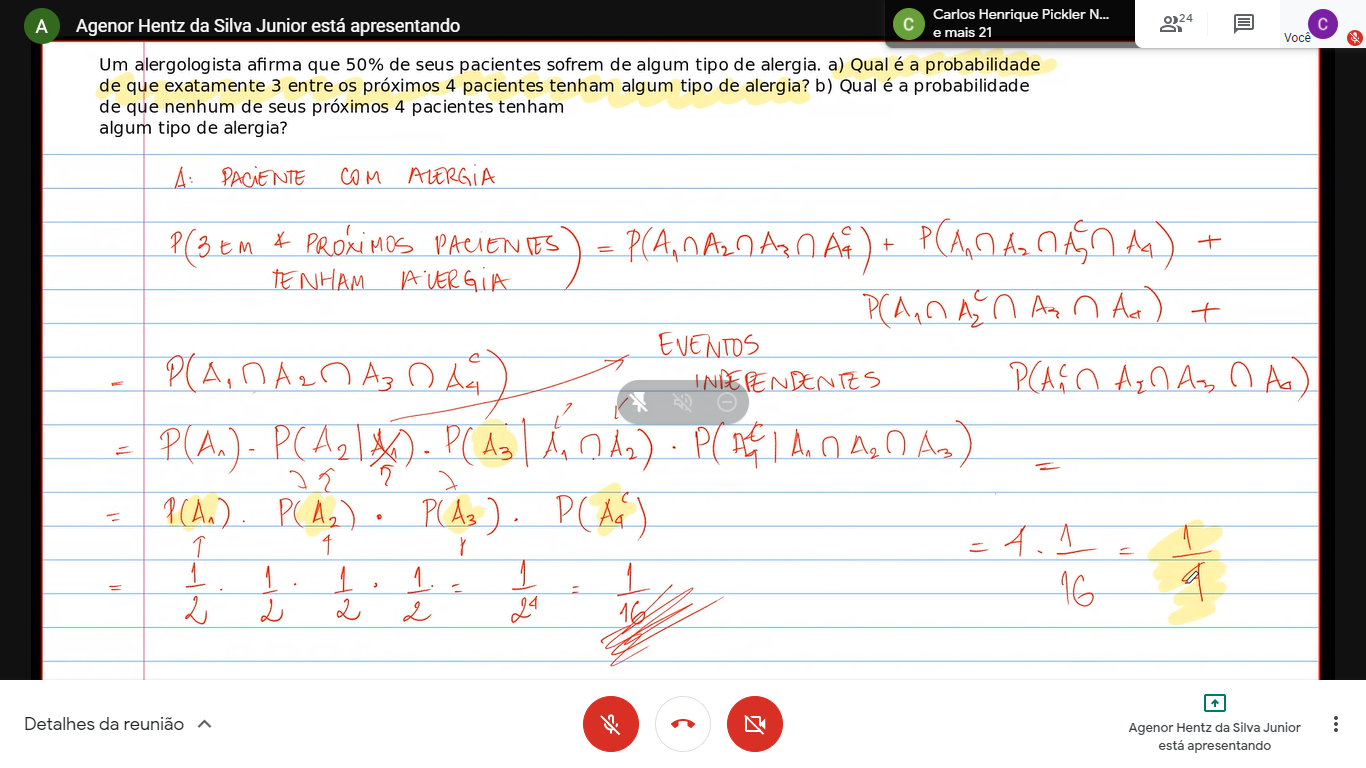 A Agenor Hentz da Silva Junior está apresentando
C Carlos Henrique Pickler N...
e mais 21
24
Você C
Um alergologista afirma que 50% de seus pacientes sofrem de algum tipo de alergia. a) Qual é a probabilidade
de que exatamente 3 entre os próximos 4 pacientes tenham algum tipo de alergia? b) Qual é a probabilidade
de que nenhum de seus próximos 4 pacientes tenham
algum tipo de alergia?
A: PACIENTE COM ALERGIA
P(3 EM 4 PRÓXIMOS PACIENTES TENHAM ALERGIA) = P(A₁∩A₂∩A₃∩A₄ᶜ) + P(A₁∩A₂∩A₃ᶜ∩A₄) +
P(A₁∩A₂ᶜ∩A₃∩A₄) +
P(A₁ᶜ∩A₂∩A₃∩A₄)
EVENTOS
INDEPENDENTES
= P(A₁∩A₂∩A₃∩A₄ᶜ)
= P(A₁)·P(A₂|A₁)·P(A₃|A₁∩A₂)·P(A₄ᶜ|A₁∩A₂∩A₃)
=
= P(A₁)·P(A₂)·P(A₃)·P(A₄ᶜ)
= 4·1/16 = 1/4
= 1/2·1/2·1/2·1/2 = 1/2⁴ = 1/16
Detalhes da reunião
Agenor Hentz da Silva Junior
está apresentando